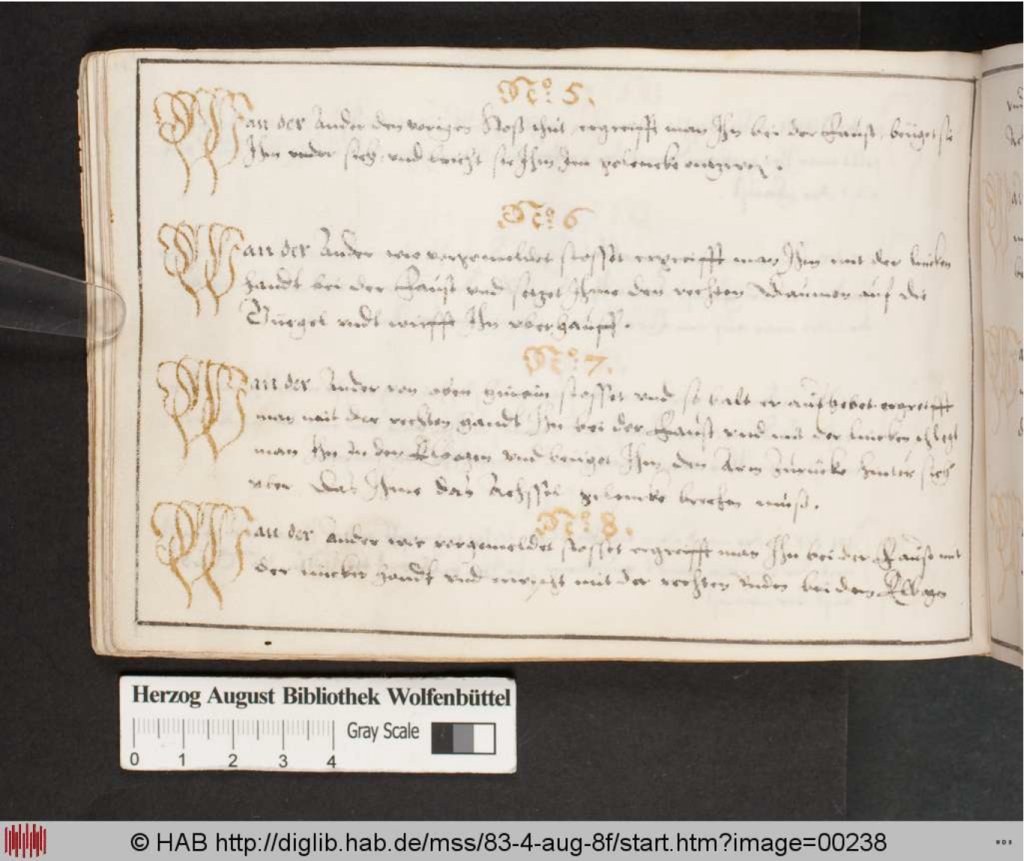 No. 5.
Wan der Ander den vorigen Stoß thut, ergreifft man Ihn bei der Faust, beuget sie
Ihm vnder sich, vnd bricht sie Ihm Im gelencke entzwey.
No. 6
Wan der Ander wie vorgemeldet stosset ergreifft man Ihn mit der lincken
handt bei der Faust vnd setzet Ihme den rechten Daumen auf die
vndt wirfft Ihn vberhauff.
No. 7.
Wan der Ander von oben hinein stosset vnd so balt er aufhebet ergreifft
man mit der rechten handt Ihn bei der Faust vnd mit der lincken schlegt
man Ihn in den Elbogen vnd beuget Ihm den Arm zurücke hinter sich
vber Das Ihme das Achssel gelencke brechen muß.
No. 8.
Wan der Ander wie vorgemeldet stosset ergreifft man Ihn bei der Faust mit
der lincken handt vnd erwischt mit der rechten vnden bei dem Elbogen
Herzog August Bibliothek Wolfenbüttel
Gray Scale
0 1 2 3 4
© HAB http://diglib.hab.de/mss/83-4-aug-8f/start.htm?image=00238